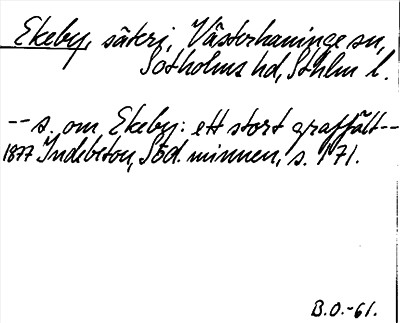 Ekeby, säteri, Västerhaninge sn,
Sotholms hd, Sthlm l.
-- s. om Ekeby: ett stort graffält --
1877 Indebetou, Söd. minnen, s. 171.
B.O.-61.